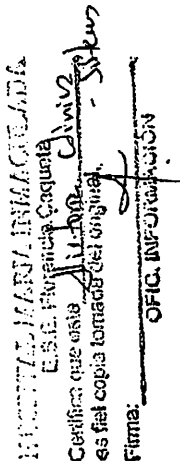 HOSPITAL MARIA INMACULADA
E.S.E. Florencia Caquetá
Certifico que este
es fiel copia tomada del original.
Firma:
OFIC. INFORMACIÓN